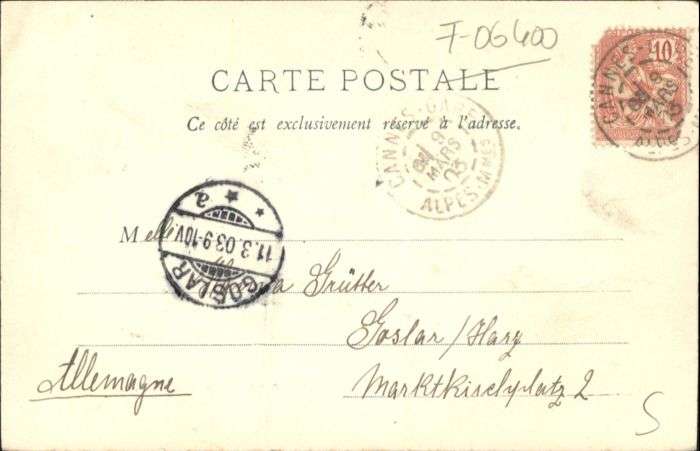 F-06400
10
CARTE POSTALE
Ce côté est exclusivement réservé à l'adresse.
CANNES-GARE
9
MARS
03
ALPES-MMES
CANNES
9
MARS
a
11.3.03.9-10V.
GOSLAR
Melle
Grütter
Goslar/Harz
Allemagne
Marktkirchplatz 2
S